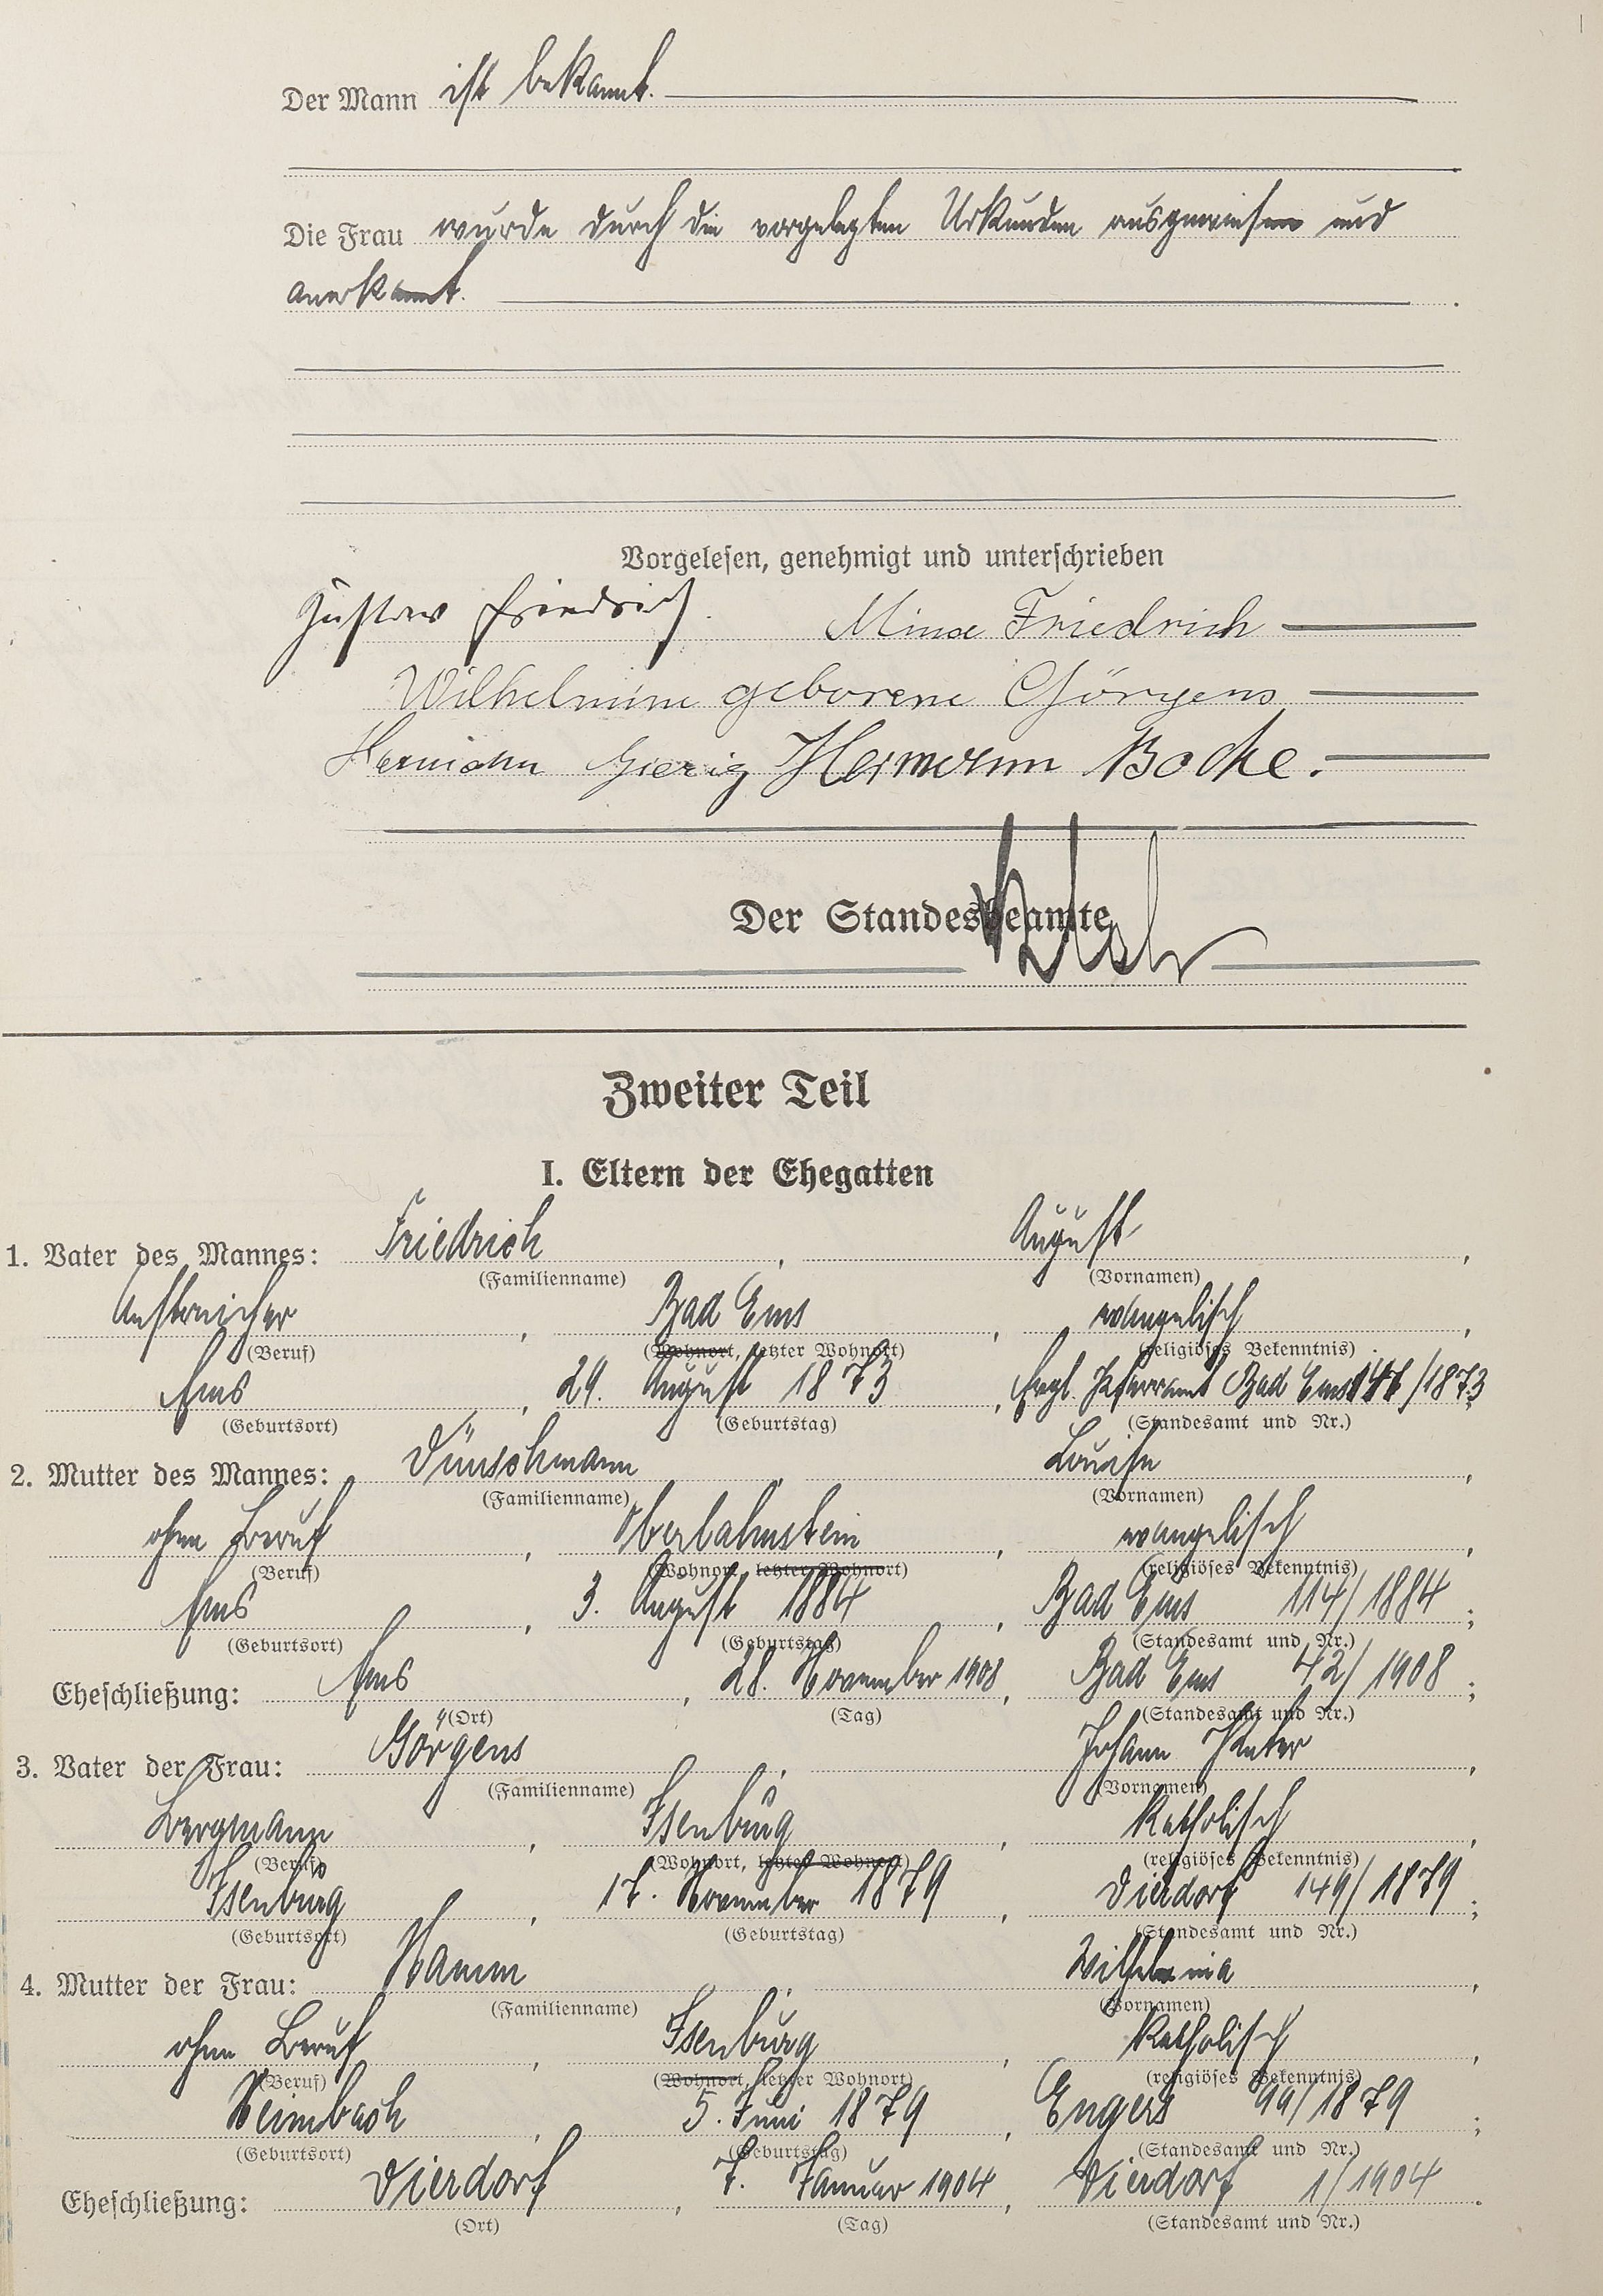 Der Mann ist bekannt.
Die Frau wurde durch die vorgelegten Urkunden ausgewiesen und
anerkannt.
Vorgelesen, genehmigt und unterschrieben
Gustav Friedrich. Mina Friedrich
Wilhelmine geborene Görgens
Hermann Gierig Hermann Bocke.
Der Standesbeamte
Zweiter Teil
I. Eltern der Ehegatten
1. Vater des Mannes: Friedrich, August,
(Familienname) (Vornamen)
Anstreicher, Bad Ems, evangelisch,
(Beruf) (Wohnort, letzter Wohnort) (religiöses Bekenntnis)
Ems, 29. August 1873, Evgl. Pfarramt Bad Ems 147/1873;
(Geburtsort) (Geburtstag) (Standesamt und Nr.)
2. Mutter des Mannes: Dünschmann, Louise,
(Familienname) (Vornamen)
ohne Beruf, Oberlahnstein, evangelisch,
(Beruf) (Wohnort, letzter Wohnort) (religiöses Bekenntnis)
Ems, 3. August 1884, Bad Ems 114/1884;
(Geburtsort) (Geburtstag) (Standesamt und Nr.)
Eheschließung: Ems, 28. November 1908, Bad Ems 42/1908;
(Ort) (Tag) (Standesamt und Nr.)
3. Vater der Frau: Görgens, Johann Peter,
(Familienname) (Vornamen)
Bergmann, Isenburg, katholisch,
(Beruf) (Wohnort, letzter Wohnort) (religiöses Bekenntnis)
Isenburg, 17. November 1879, Dierdorf 149/1879;
(Geburtsort) (Geburtstag) (Standesamt und Nr.)
4. Mutter der Frau: Hamm, Wilhelmina,
(Familienname) (Vornamen)
ohne Beruf, Isenburg, katholisch,
(Beruf) (Wohnort, letzter Wohnort) (religiöses Bekenntnis)
Heimbach, 5. Juni 1879, Engers 99/1879;
(Geburtsort) (Geburtstag) (Standesamt und Nr.)
Eheschließung: Dierdorf, 7. Januar 1904, Dierdorf 1/1904.
(Ort) (Tag) (Standesamt und Nr.)